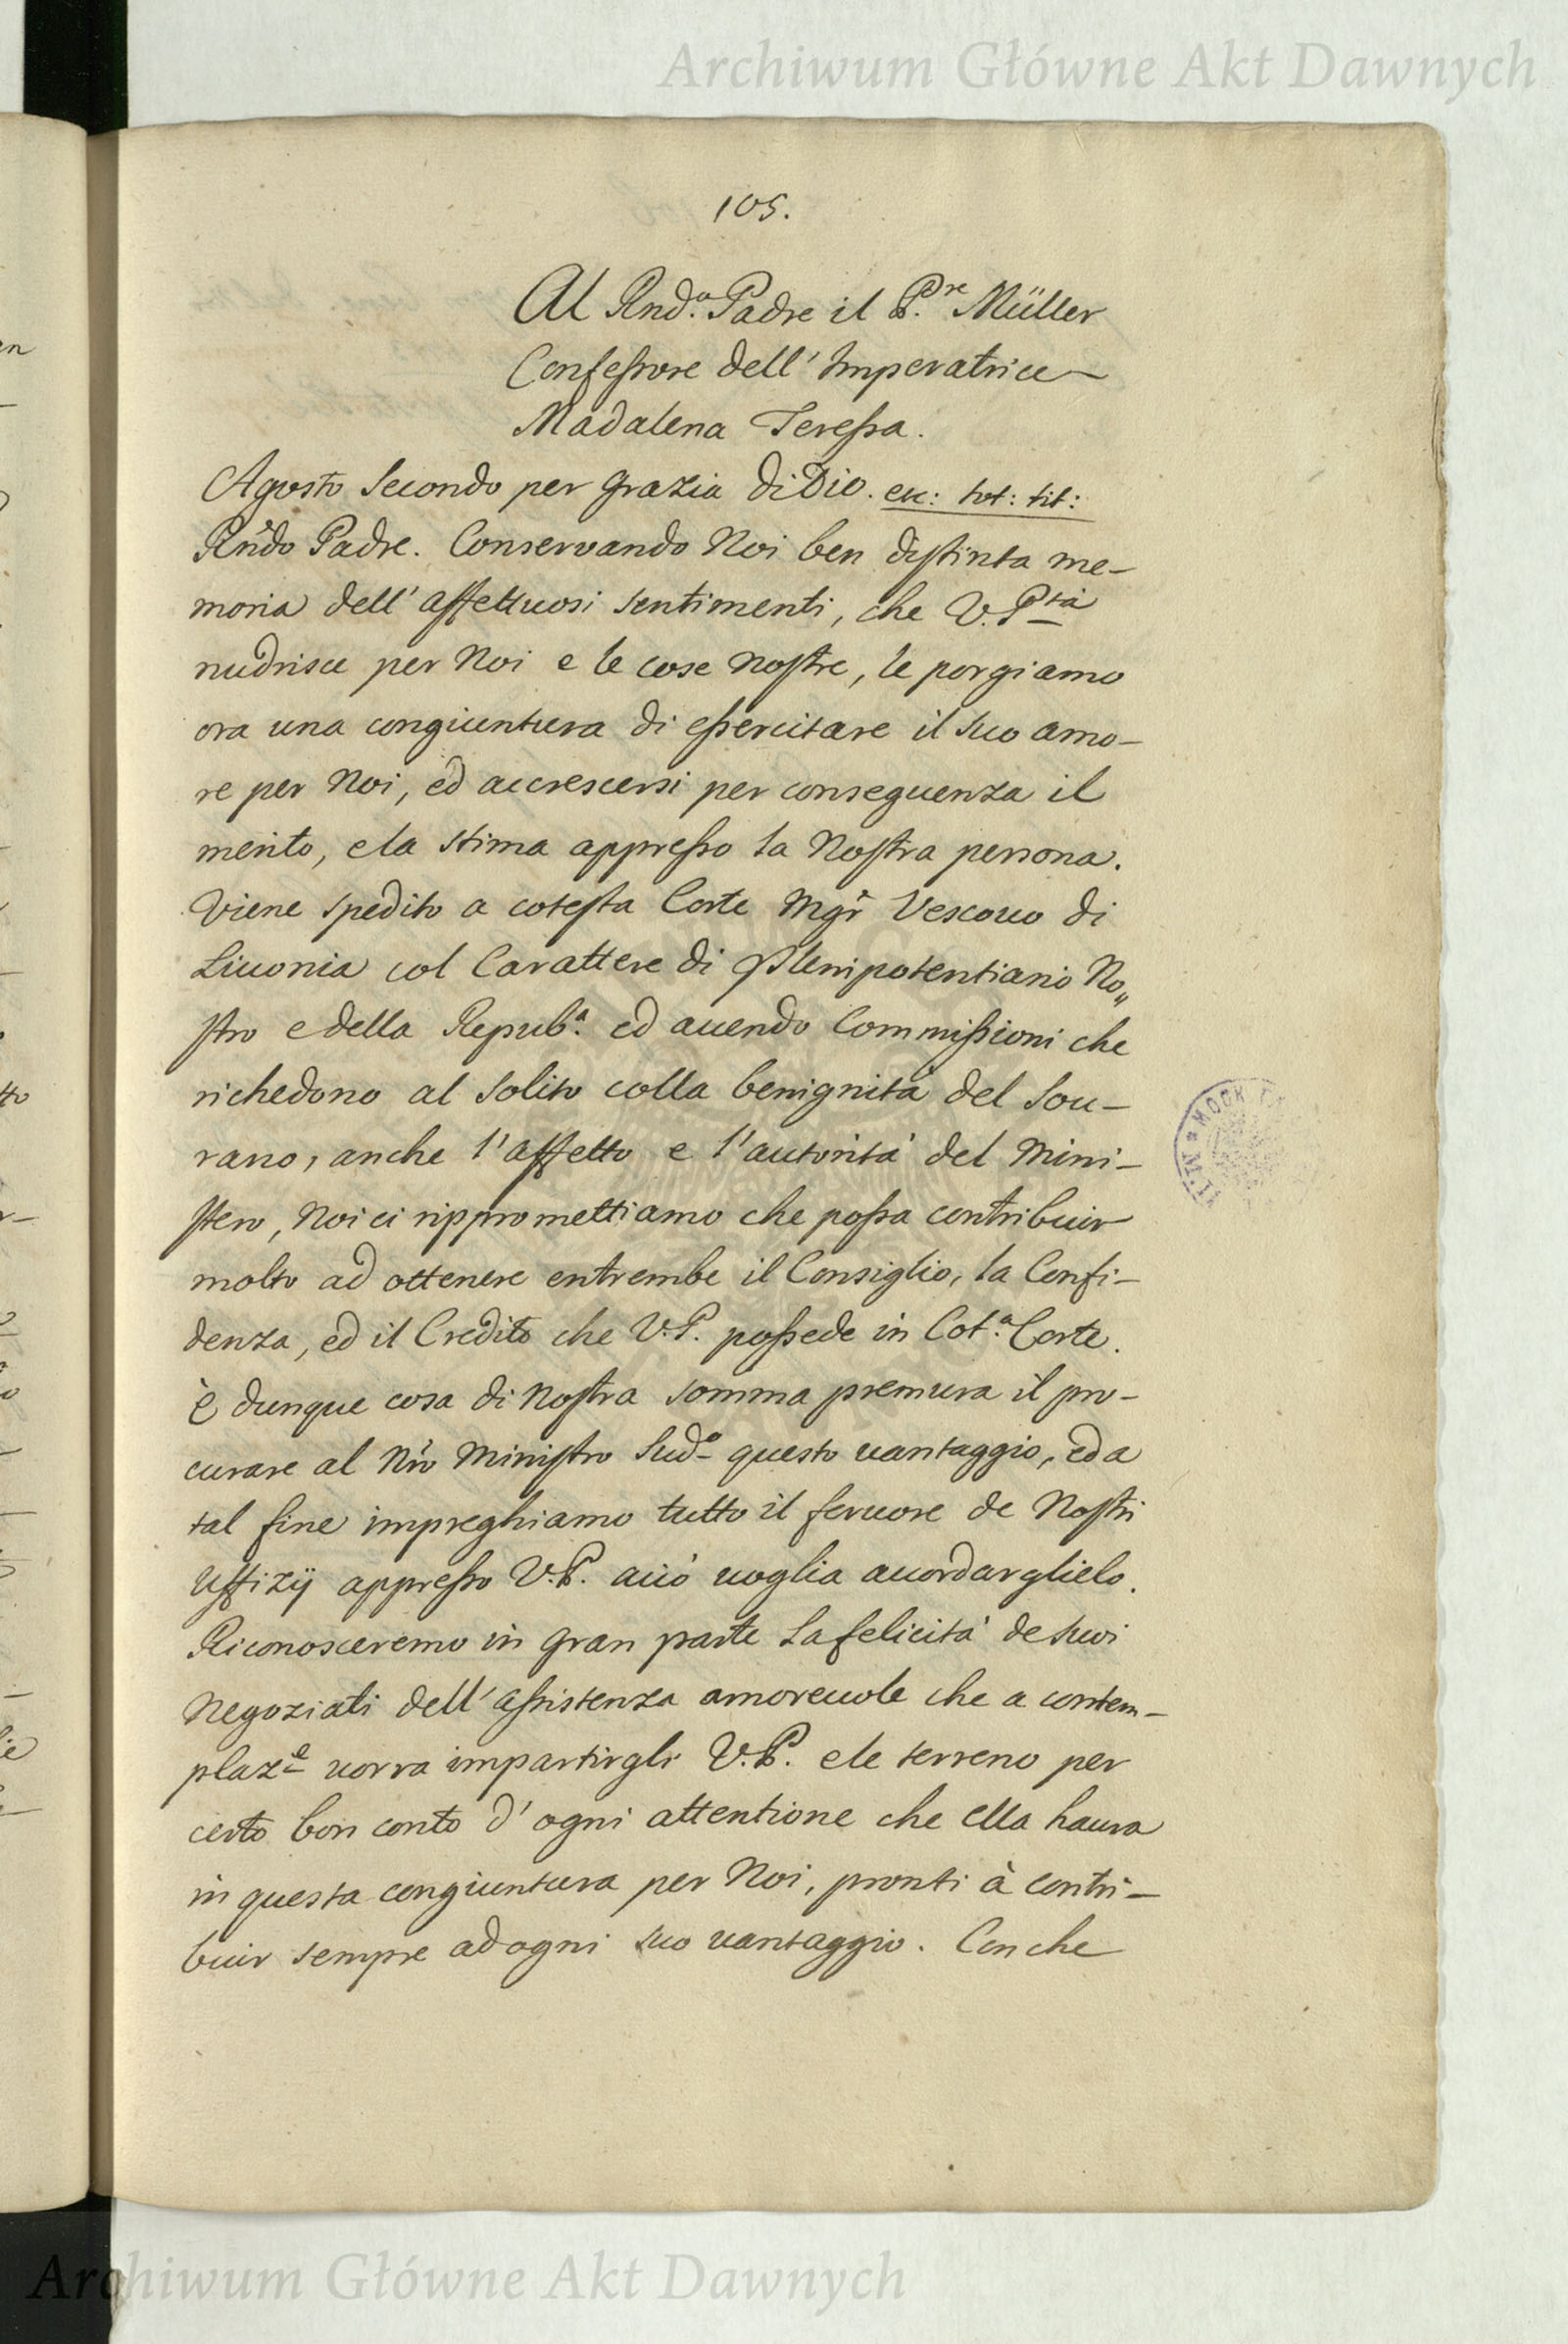 Archiwum Główne Akt Dawnych
105.
Al Rnd.º Padre il P.re Müller
Confessore dell' Imperatrice
Madalena Teressa.
Agosto Secondo per grazia di Dio. etc: tot: tit:
Rñdo Padre. Conservando Noi ben distinta me-
moria dell' affettuosi sentimenti, che V. Ptà
nudrisce per Noi e le cose Nostre, le porgiamo
ora una congiuntura di essercitare il suo amo-
re per Noi, ed accrescersi per conseguenza il
merito, e la stima appresso la Nostra persona.
Viene spedito a cotesta Corte Mgr̃ Vescouo di
Liuonia col Carattere di Plenipotentiario No„
stro e della Repub.ª ed auendo Commissioni che
richedono al solito colla benignità del Sou-
rano, anche l'affetto e l'autorità del Mini-
stero, Noi ci rippromettiamo che possa contribuir
molto ad ottenere entrembe il Consiglio, la Confi-
denza, ed il Credito che V.P. possede in Cot.ª Corte.
è dunque cosa di Nostra somma premura il pro-
curare al Nr̃o Ministro Sudº questo uantaggio, ed a
tal fine impreghiamo tutto il feruore de Nostri
Uffizij appresso V.P. acciò uoglia accordarglielo.
Riconosceremo in gran parte la felicità de suoi
Negoziati dell' assistenza amoreuole che a contem-
plaze uorra impartirgli V.P. e le terreno per
certo bon conto d' ogni attentione che ella haura
in questa congiuntura per Noi, pronti à contri-
buir sempre ad ogni suo uantaggio. Con che
Archiwum Główne Akt Dawnych